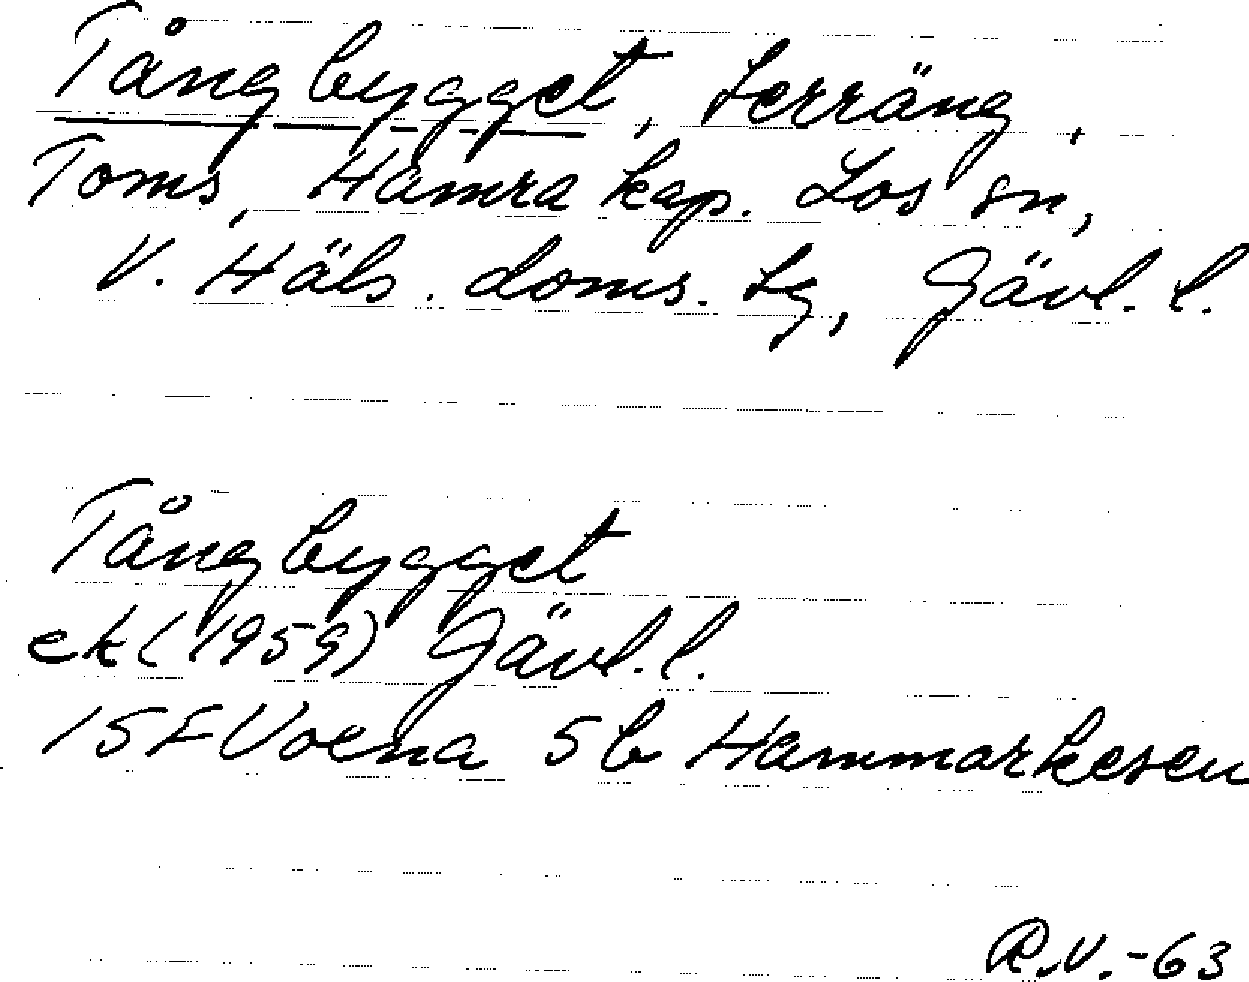 Tångbygget, terräng,
Toms, Hamra kap. Los sn,
V. Häls. doms. tg, Gävl. l.
Tångbygget
ek (1959) Gävl. l.
15F Voxna 5b Hammarkesen
R.V.-63